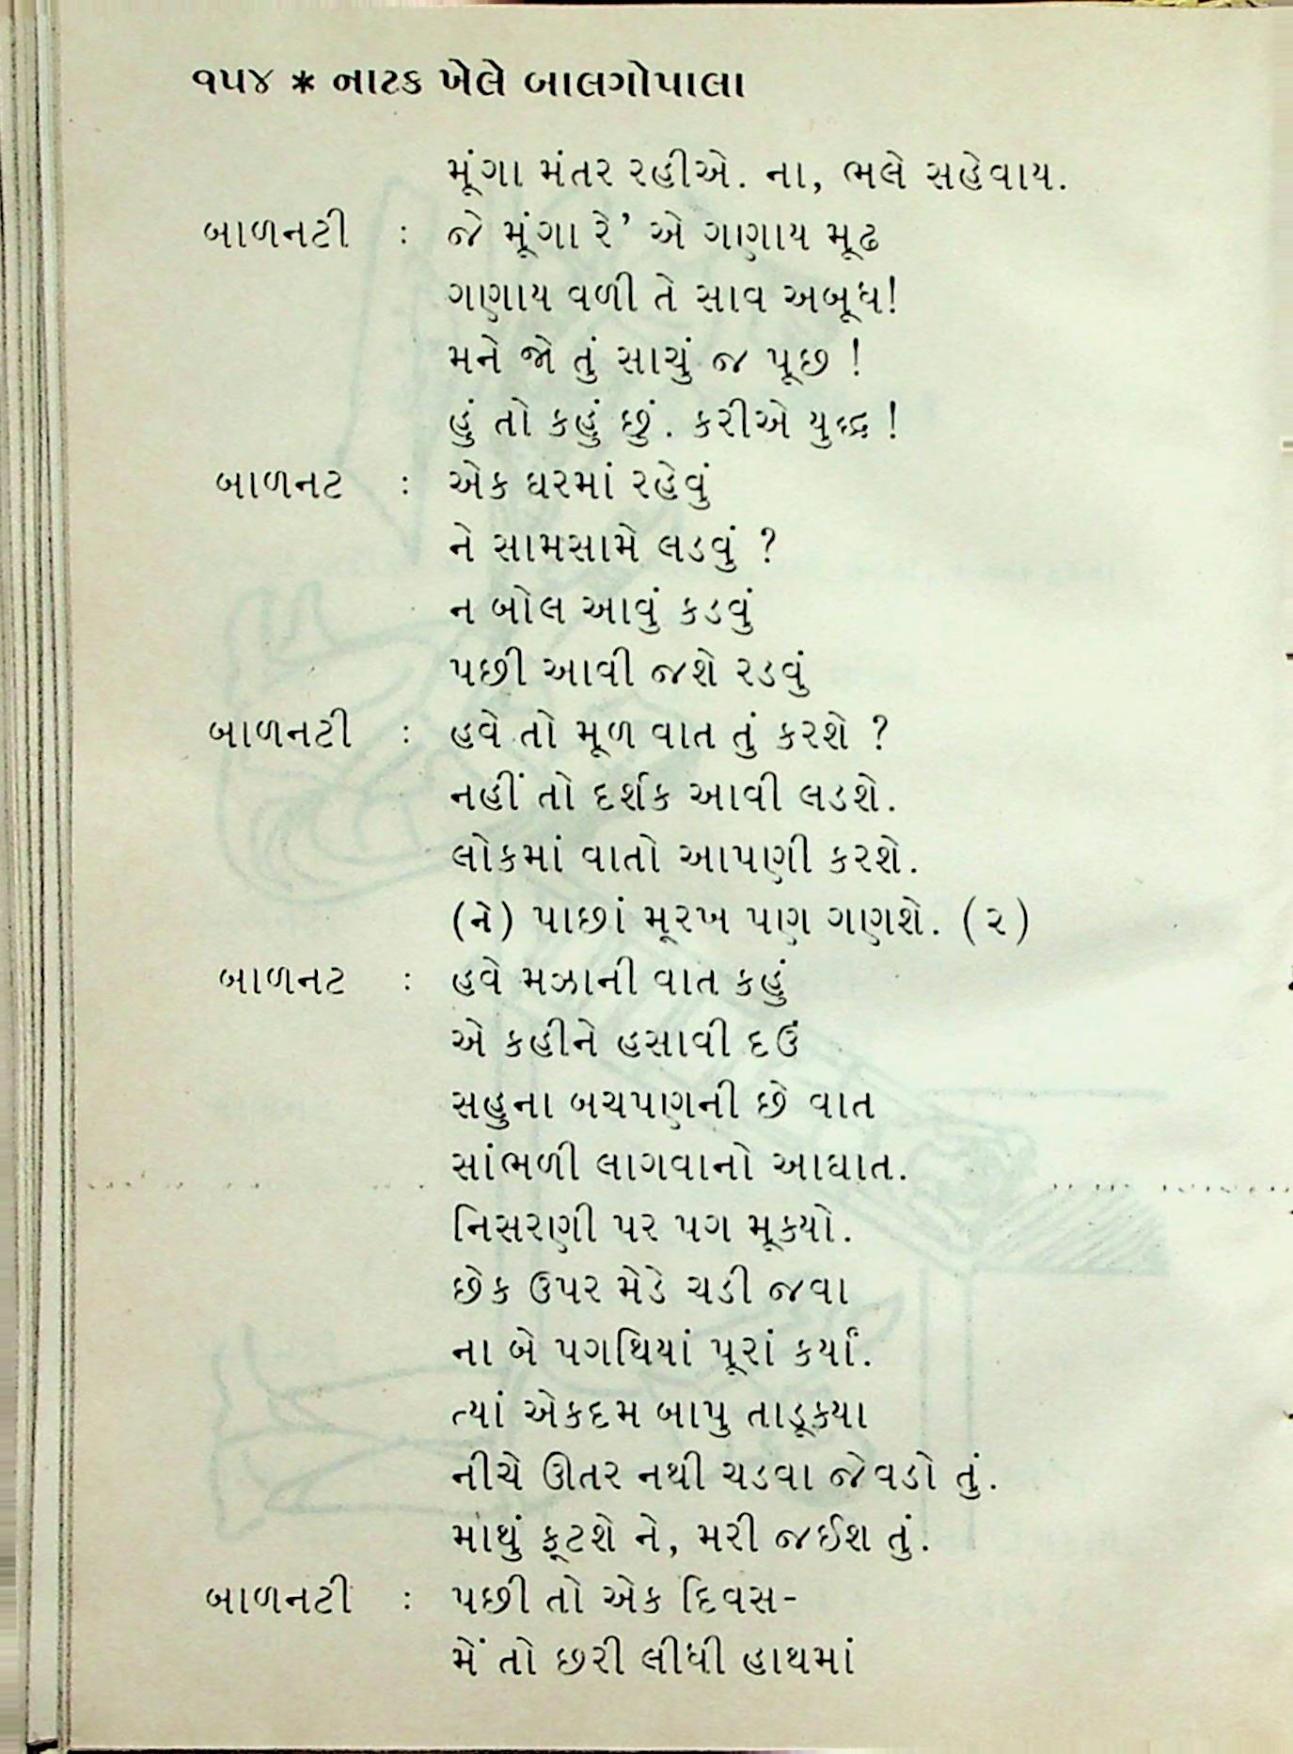 ૧૫૪ * નાટક ખેલે બાલગોપાલા
મૂંગા મંતર રહીએ. ના, ભલે સહેવાય.
બાળનટી : જે મૂંગા રે' એ ગણાય મૂઢ
ગણાય વળી તે સાવ અબૂધ!
મને જો તું સાચું જ પૂછ !
હું તો કહું છું. કરીએ યુદ્ધ !
બાળનટ : એક ઘરમાં રહેવું
ને સામસામે લડવું ?
ન બોલ આવું કડવું
પછી આવી જશે રડવું
બાળનટી : હવે તો મૂળ વાત તું કરશે ?
નહીં તો દર્શક આવી લડશે.
લોકમાં વાતો આપણી કરશે.
(ને) પાછાં મૂરખ પણ ગણશે. (૨)
બાળનટ : હવે મઝાની વાત કહું
એ કહીને હસાવી દઉં
સહુના બચપણની છે વાત
સાંભળી લાગવાનો આઘાત.
નિસરણી પર પગ મૂક્યો.
છેક ઉપર મેડે ચડી જવા
ના બે પગથિયાં પૂરાં કર્યાં.
ત્યાં એકદમ બાપુ તાડૂક્યા
નીચે ઊતર નથી ચડવા જેવડો તું.
માથું ફૂટશે ને, મરી જઈશ તું.
બાળનટી : પછી તો એક દિવસ-
મેં તો છરી લીધી હાથમાં